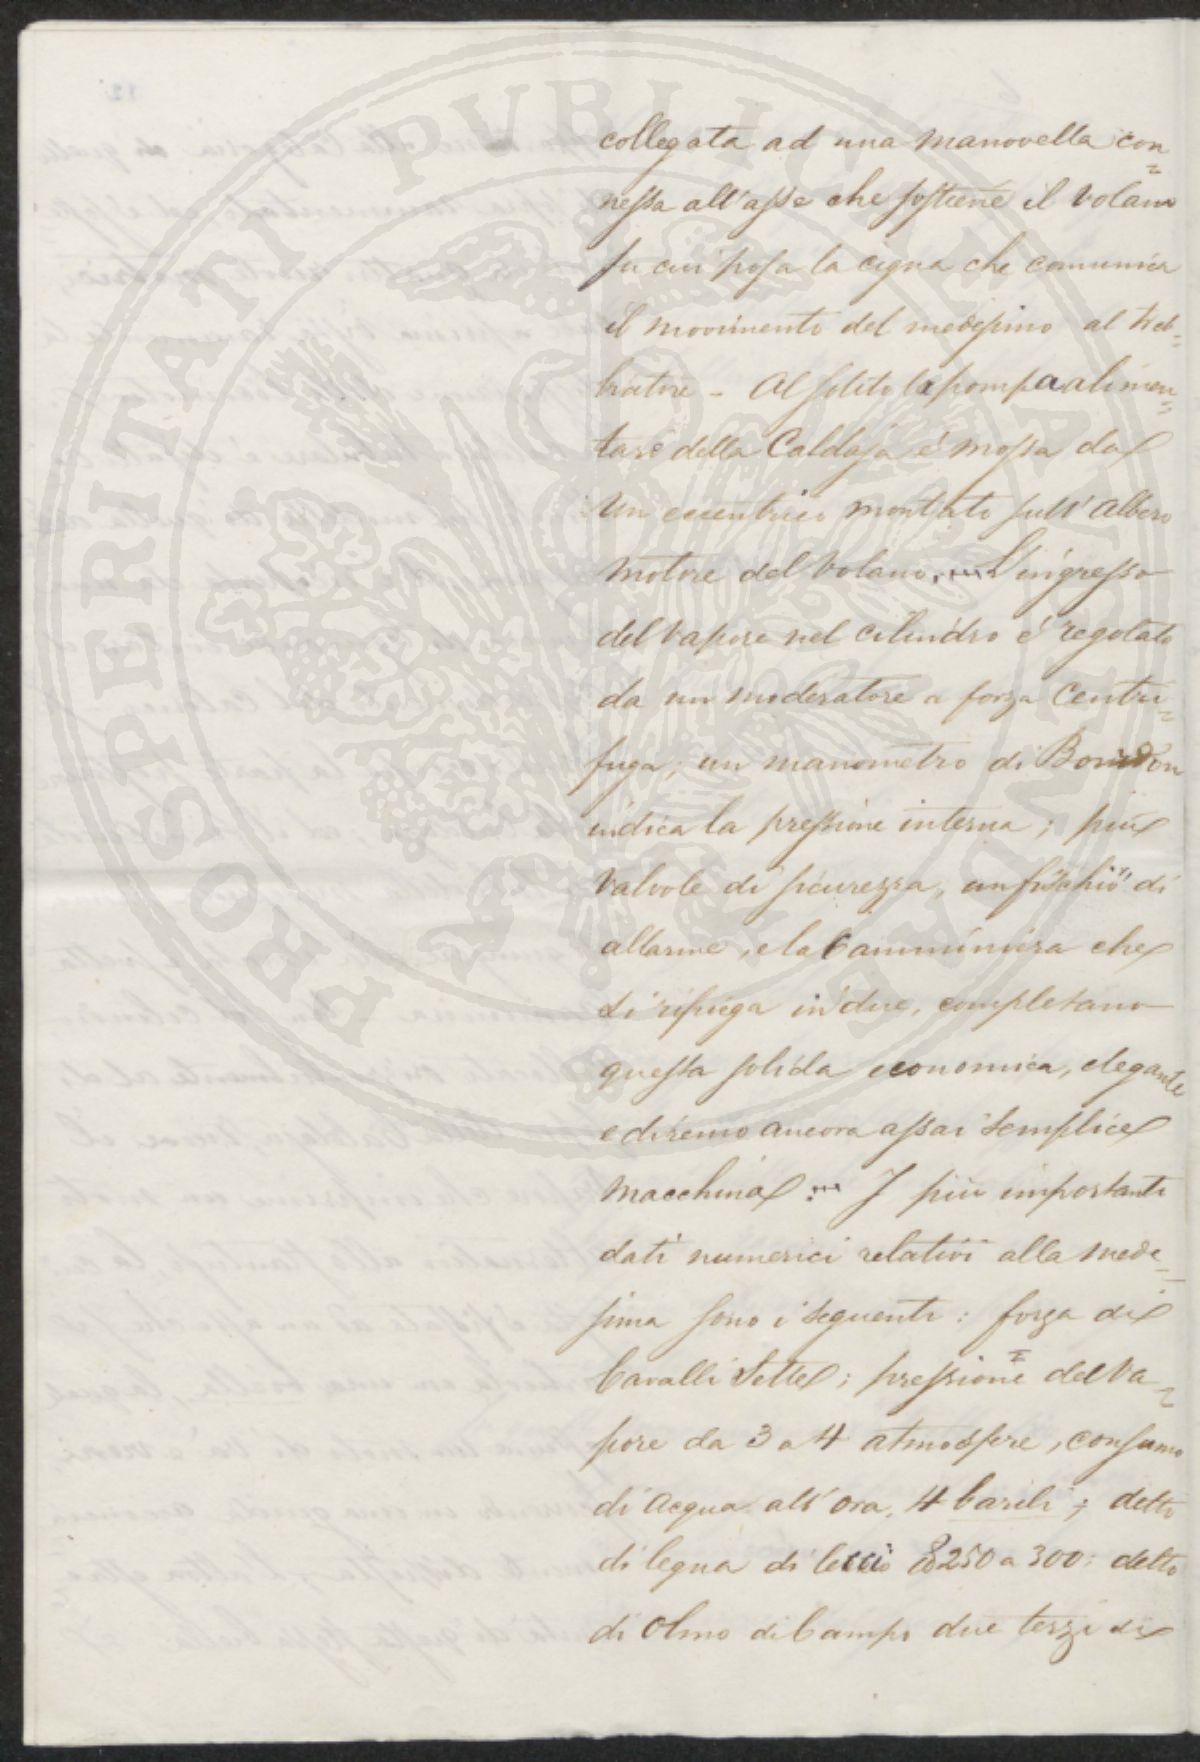 collegata ad una manovella con=
nessa all'asse che sostiene il volano
su cui posa la cigna che comunica
il movimento del medesimo al treb=
biatore - Al solito la pompa alimen=
tare della Caldaja é mossa da
un eccentrico montato sull'albero
motore del volano, L'ingresso
del vapore nel cilindro é regolato
da un moderatore a forza centri=
fuga; un manometro di Bourdon
indica la pressione interna; piu
valvole di sicurezza, un fischio di
allarme, e la Camminiera che
si ripiega in due, completano
questa solida economica, elegante
e diremo ancora assai semplice
macchina I più importanti
dati numerici relativi alla mede=
sima sono i seguenti: forza di
Cavalli Sette; pressione del va=
pore da 3 a 4 atmosfere, consumo
di acqua all'ora, 4 barili; detto
di legna di leccio 250 a 300; detto
di Olmo di Campo due terzi di
PROSPERITATI PUBLICAE AUGENDAE